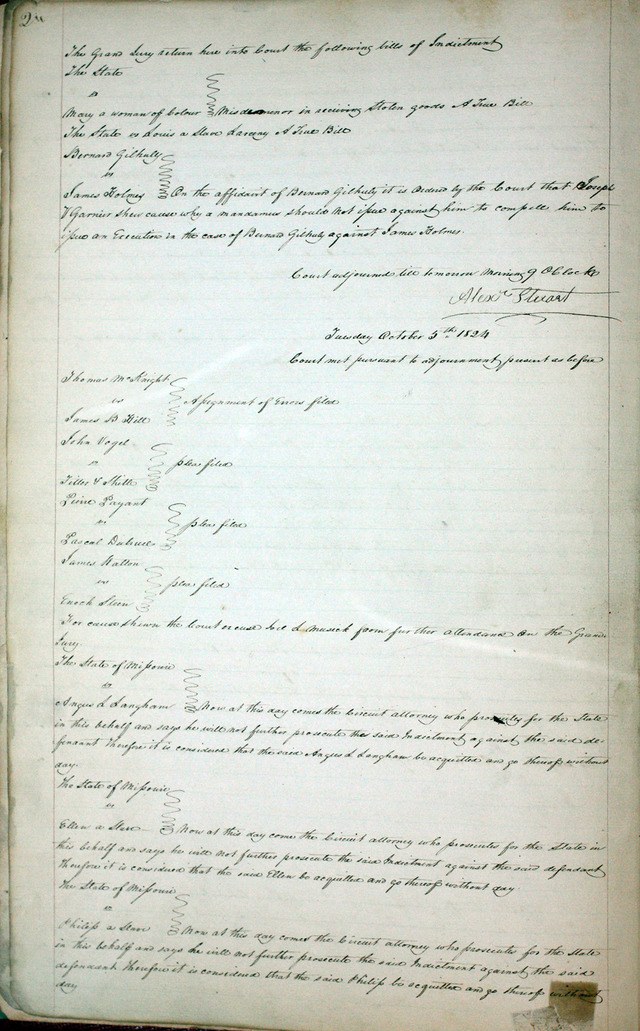 2
The Grand Jury return here into Court the following bills of Indictment
The State
vs
Mary a woman of Colour Misdemenor in reciving Stolen goods A True Bill
The State vs Louis a Slave Larceny A True Bill
Bernard Gilhuly
vs
James Holmes On the affidavit of Bernard Gilhuly it is Ordered by the Court that Joseph
V Garnier Shew cause why a mandamus should not issue against him to compell him to
issue an Execution in the case of Bernard Gilhuly against James Holmes.
Court adjourned till tomorrow Morning 9 OClock
Alexr Stuart
Tuesday October 5th 1824
Court met pursuant to adjournment present as before
Thomas McKnight
vs Assignment of Errors filed
James B Hill
John Vogel
vs plea filed
Tiller &
Pierre Payant
vs plea filed
Pascal
James Walton
vs plea filed
Enoch Steen
For cause shewn the Court excuse Joel L Musick from further attendance On the Grand
Jury
The State of Missouri
vs
Angus L Langham Now at this day comes the Circuit attorney who prosecutes for the State
in this behalf and says he will not further prosecute the said Indictment against the said de-
fendant Therefore it is considered that the said Angus L Langham be acquitted and go thereof without
day.
The State of Missouri
vs
Ellen a Slave Now at this day come the Circuit attorney who prosecutes for the State in
this behalf and says he will not further prosecute the said Indictment against the said defendant
Therefore it is considered that the said Ellen be acquitted and go thereof without day.
The State of Missouri
vs
Philip a Slave Now at this day comes the Circuit attorney who prosecutes for the State
in this behalf and says he will not further prosecute the said Indictment against the said
defendant. Therefore it is considered that the said Philip be acquitted and go thereof without
day